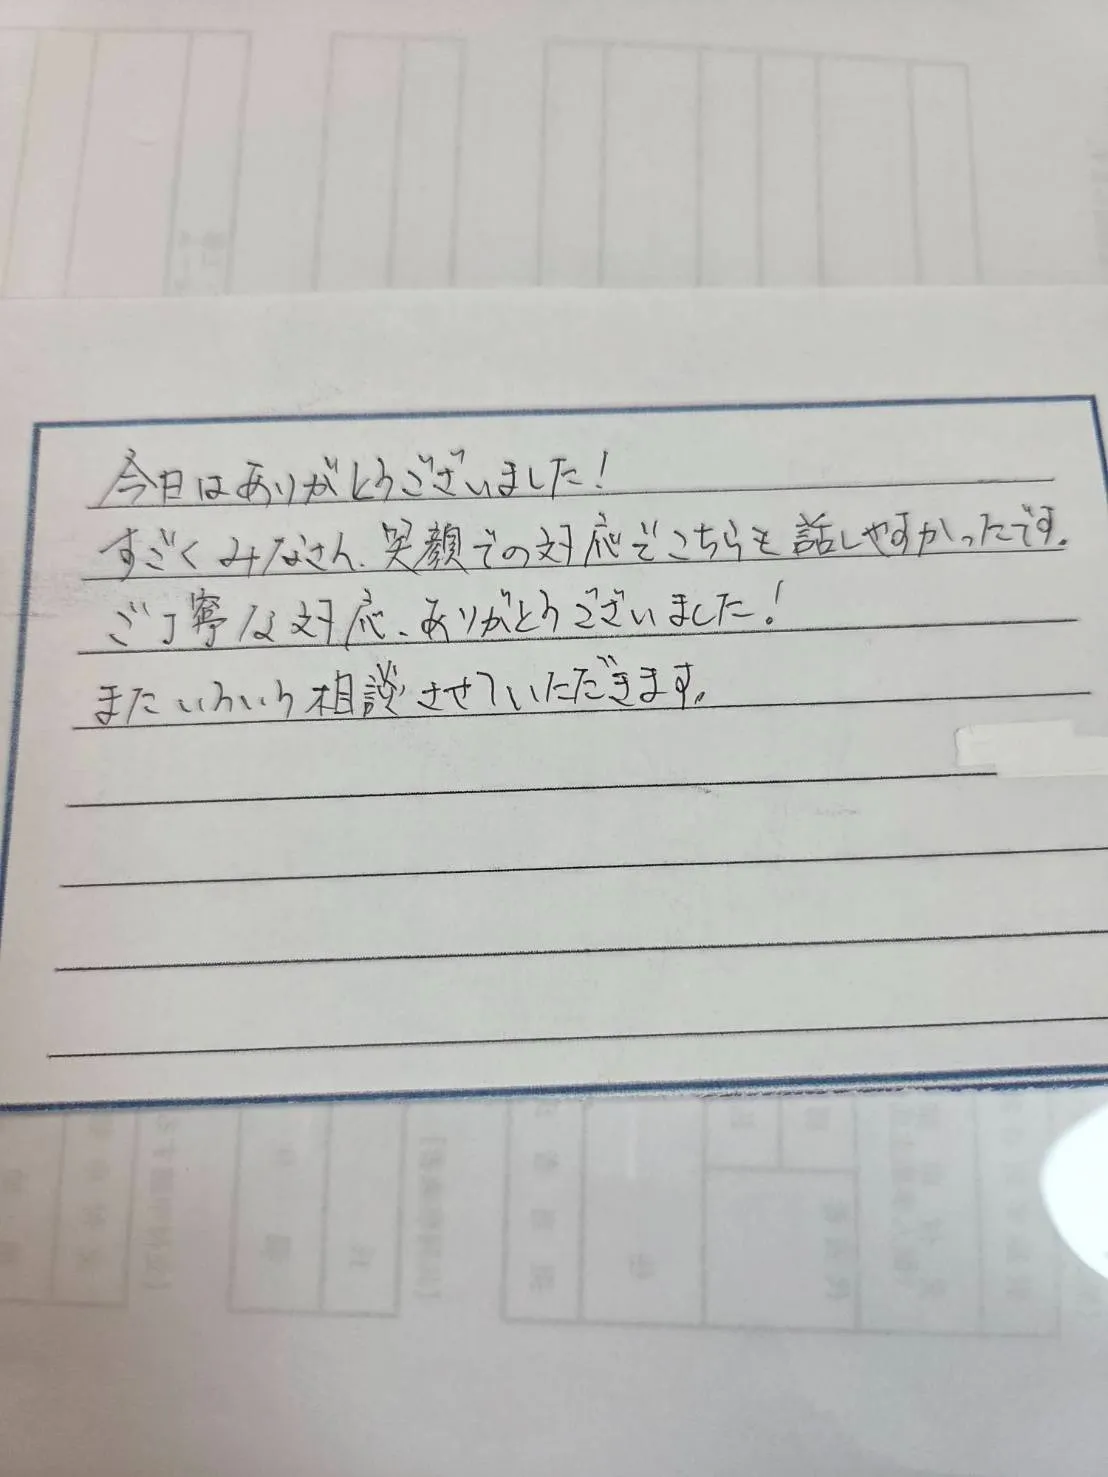 今日はありがとうございました!
すごくみなさん、笑顔での対応でこちらも話しやすかったです。
ご丁寧な対応、ありがとうございました!
またいろいろ相談させていただきます。